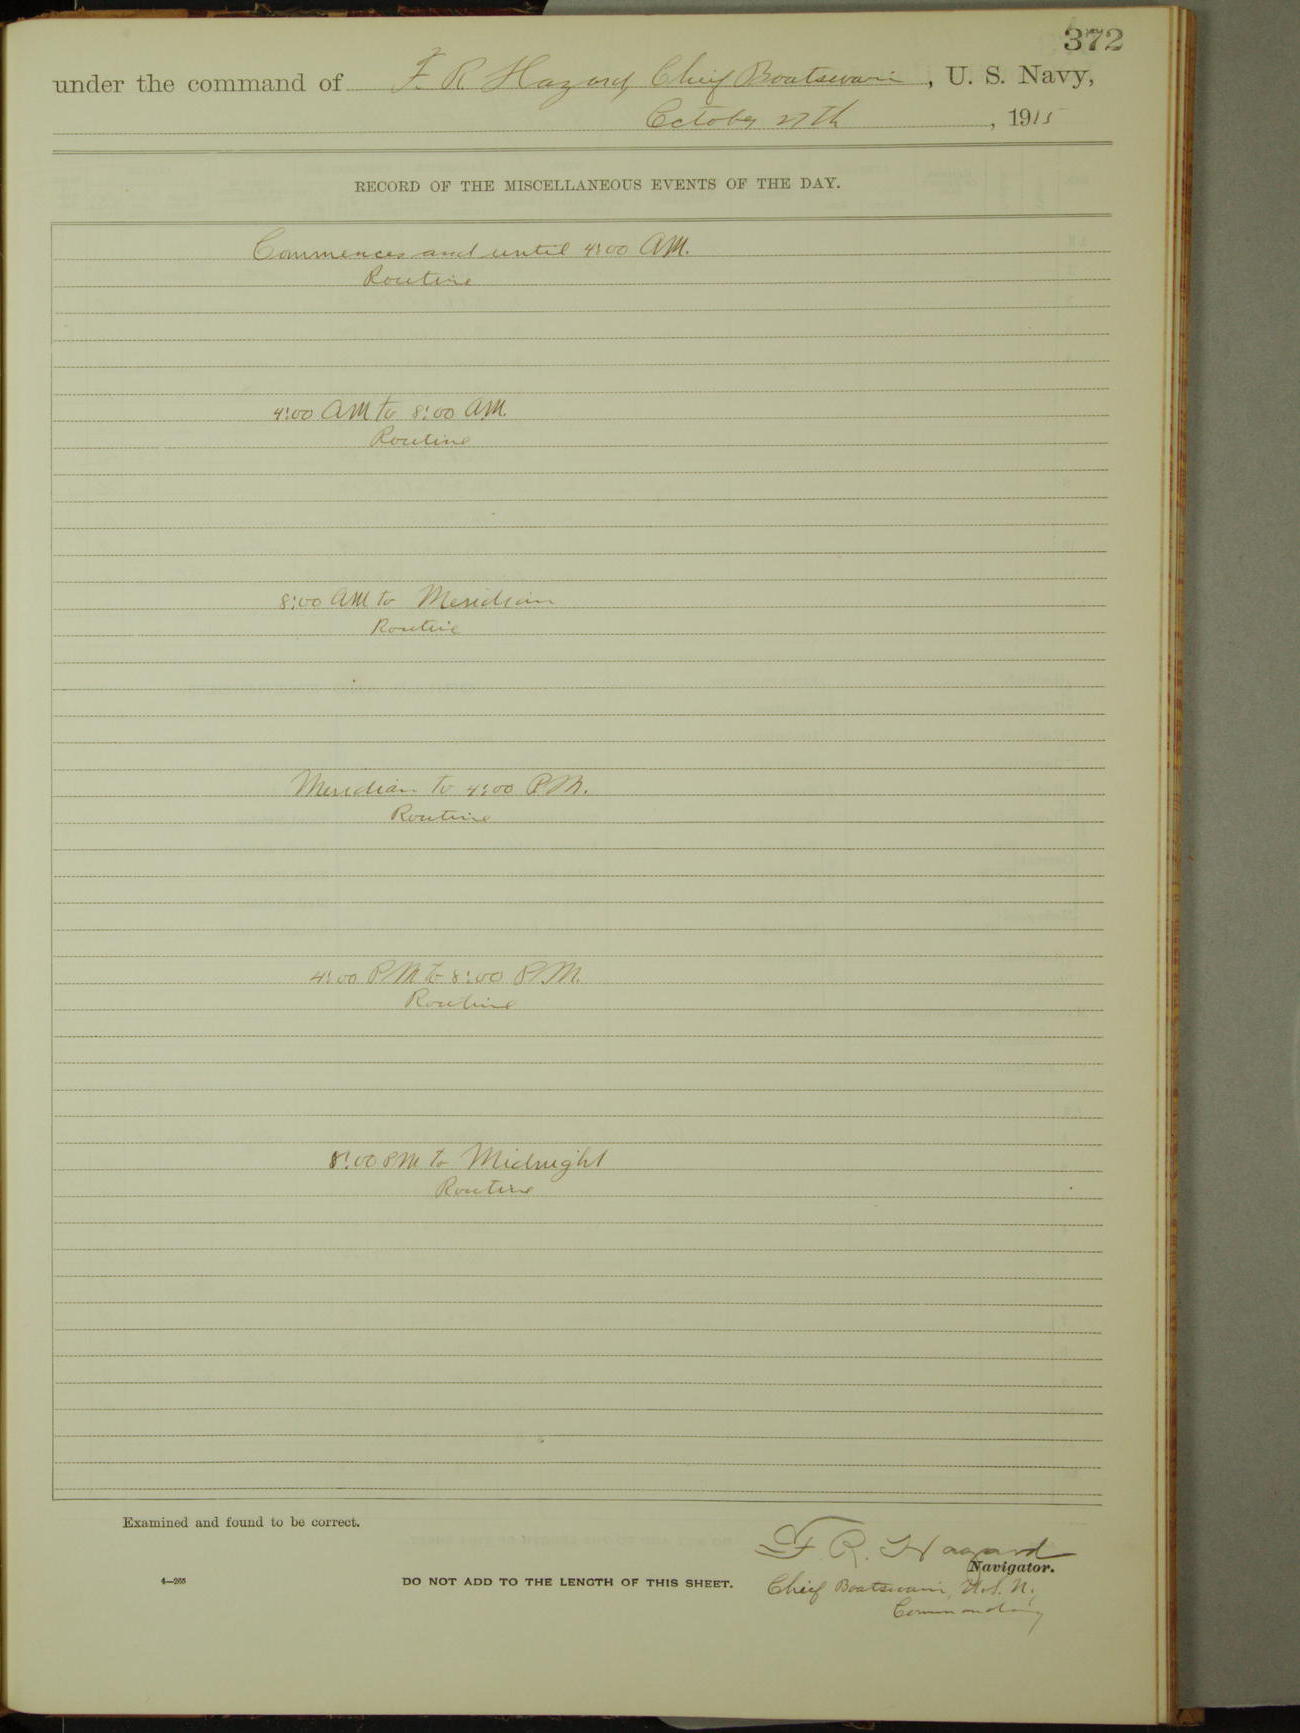 372
under the command of F. R. Hazard, Chief Boatswain, U. S. Navy,
October 27th, 1915
RECORD OF THE MISCELLANEOUS EVENTS OF THE DAY.
Commences and until 4:00 A.M.
Routine
4:00 A.M to 8:00 A.M.
Routine
8:00 A.M to Meridian
Routine
Meridian to 4:00 P.M.
Routine
4:00 P.M to 8:00 P.M.
Routine
8:00 P.M to Midnight
Routine
Examined and found to be correct.
F. R. Hazard
Navigator.
4—265
DO NOT ADD TO THE LENGTH OF THIS SHEET.
Chief Boatswain, U.S.N.,
Commanding